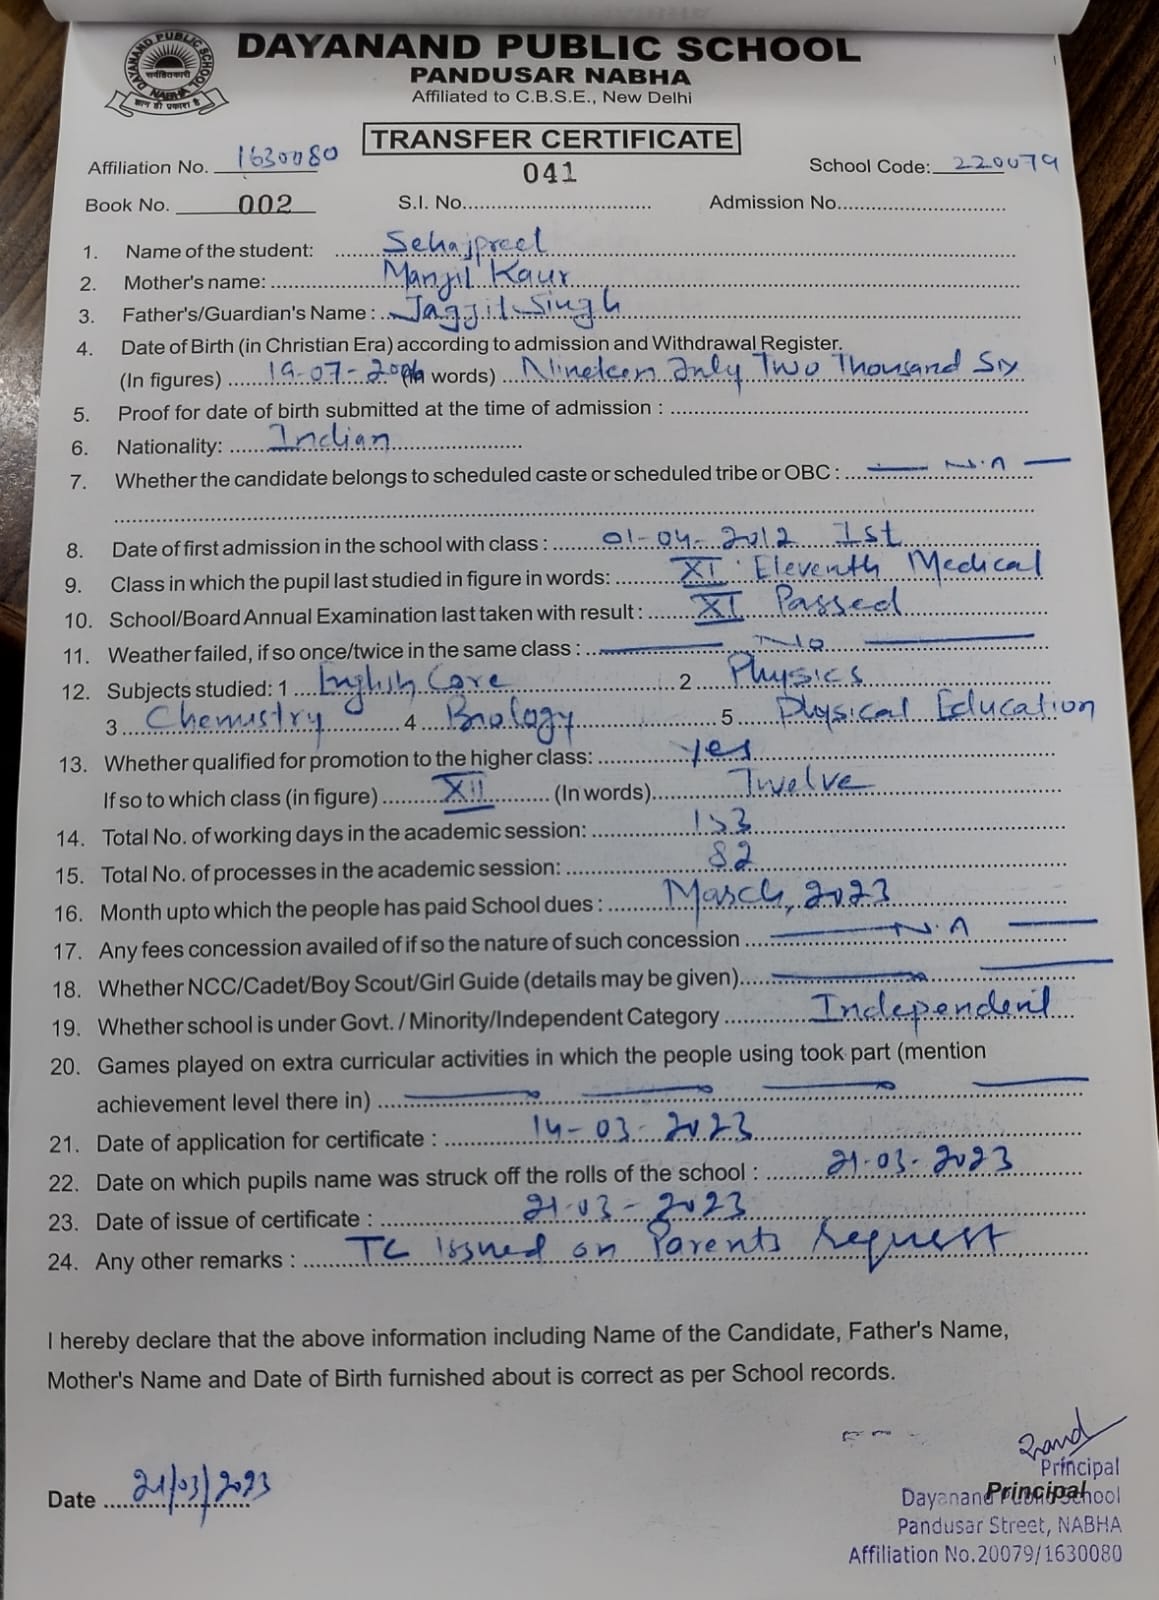 DAYANAND PUBLIC SCHOOL
PANDUSAR NABHA
Affiliated to C.B.S.E., New Delhi
DAYANAND PUBLIC SCHOOL
NABHA
TRANSFER CERTIFICATE
Affiliation No. 1630080 041 School Code: 220079
Book No. 002 S.I. No. Admission No.
1. Name of the student: Sehajpreet
2. Mother's name: Manjit Kaur
3. Father's/Guardian's Name : Jagjit Singh
4. Date of Birth (in Christian Era) according to admission and Withdrawal Register.
(In figures) 19-07-2006 (In words) Nineteen July Two Thousand Six
5. Proof for date of birth submitted at the time of admission :
6. Nationality: Indian
7. Whether the candidate belongs to scheduled caste or scheduled tribe or OBC : N.A
8. Date of first admission in the school with class : 01-04-2012 1st
9. Class in which the pupil last studied in figure in words: XI Eleventh Medical
10. School/Board Annual Examination last taken with result : XI Passed
11. Weather failed, if so once/twice in the same class : No
12. Subjects studied: 1 English Core 2 Physics
3 Chemistry 4 Biology 5 Physical Education
13. Whether qualified for promotion to the higher class: yes
If so to which class (in figure) XII (In words) Twelve
14. Total No. of working days in the academic session:
15. Total No. of processes in the academic session: 82
16. Month upto which the people has paid School dues : March, 2023
17. Any fees concession availed of if so the nature of such concession N.A
18. Whether NCC/Cadet/Boy Scout/Girl Guide (details may be given)
19. Whether school is under Govt. / Minority/Independent Category Independent
20. Games played on extra curricular activities in which the people using took part (mention
achievement level there in)
21. Date of application for certificate : 14-03-2023
22. Date on which pupils name was struck off the rolls of the school : 21-03-2023
23. Date of issue of certificate : 21-03-2023
24. Any other remarks : TC issued on Parents request
I hereby declare that the above information including Name of the Candidate, Father's Name,
Mother's Name and Date of Birth furnished about is correct as per School records.
Date 21/03/2023
Principal
Principal
Dayanand Public School
Pandusar Street, NABHA
Affiliation No.20079/1630080